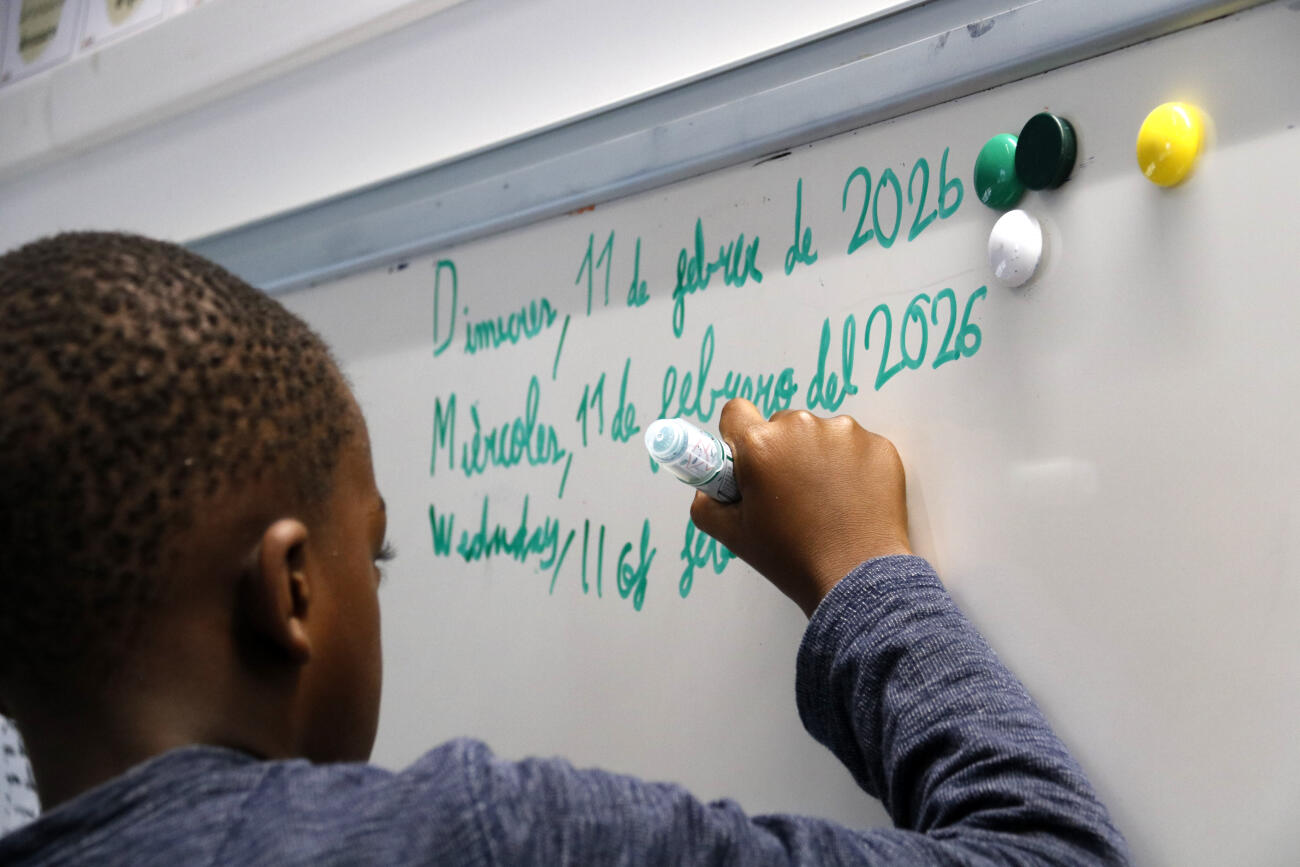 Dimecres, 11 de febrer de 2026
Mièrcoles, 11 de febrero del 2026
Wednsday, 11 of feb